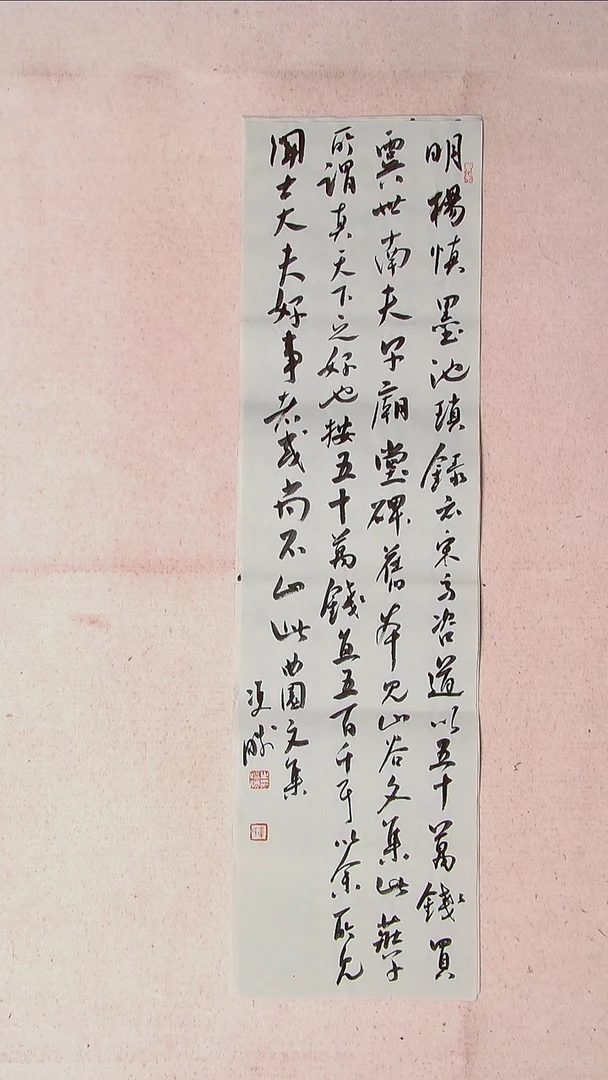 明楊慎墨池瑣錄云宋方咨道以五十萬錢買
虞世南夫子廟堂碑舊本見山谷文集此莊子
所謂真天下之好也按五十萬錢直五百千耳以余所見
聞士大夫好事者或尚不止此曲園文集